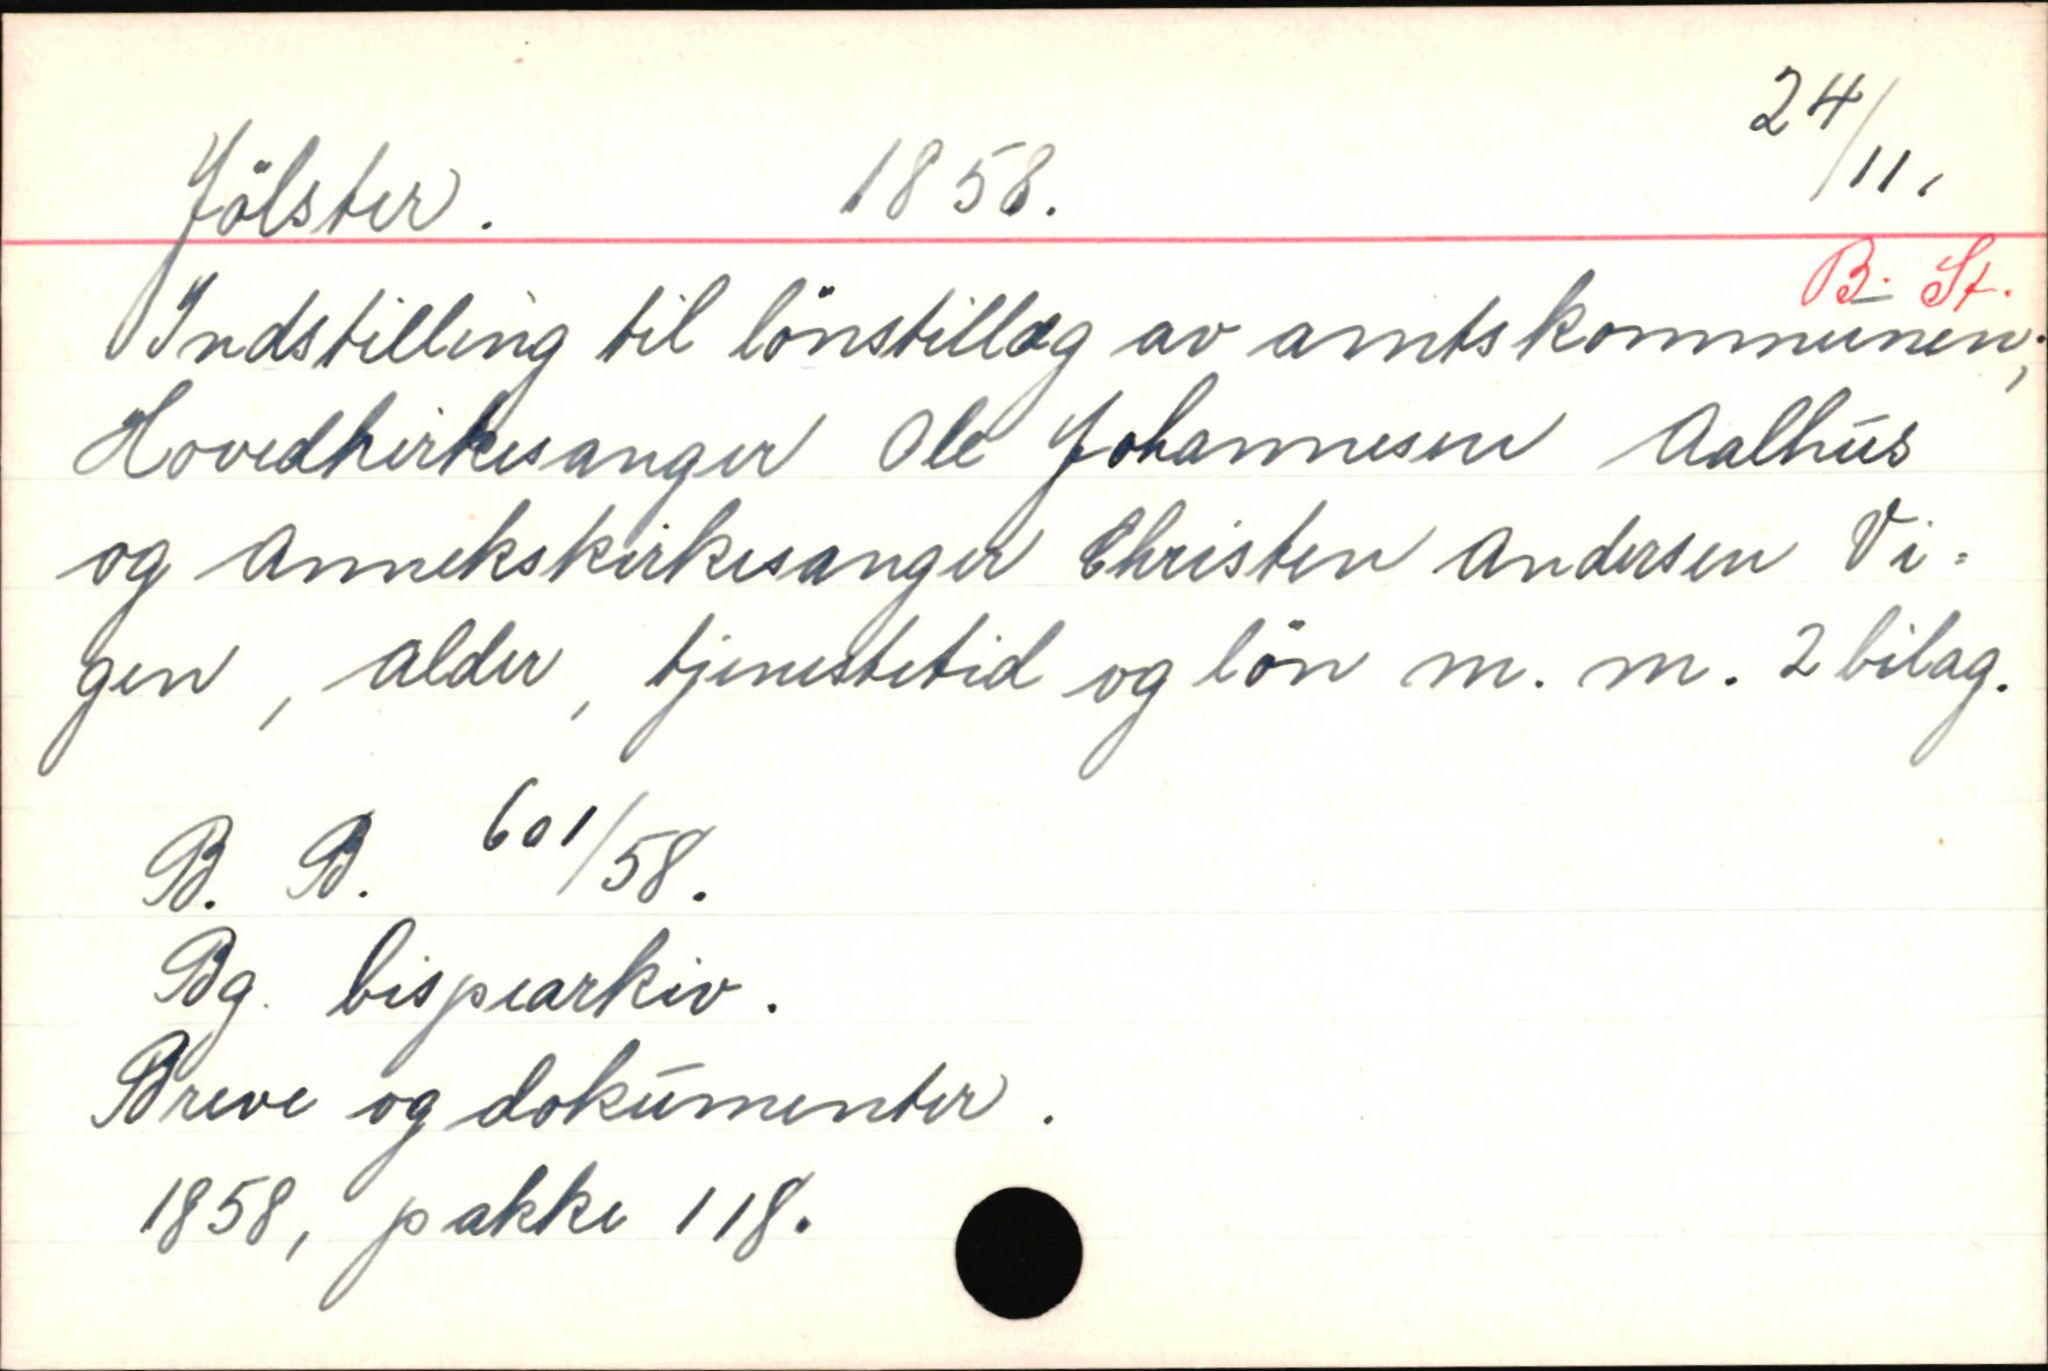 Jölster. 1858. 24/11.
B. St.
Indstilling til lönstillæg av amtskommunen;
Hovedkirkesanger Ole Johannesen Aalhus
og Annekskirkesanger Christen Andersen Vi=
gen, alder, tjenestetid og lön m. m. 2 bilag.
B. B. 601/58.
Bg. bispearkiv.
Breve og dokumenter.
1858, pakke 118.